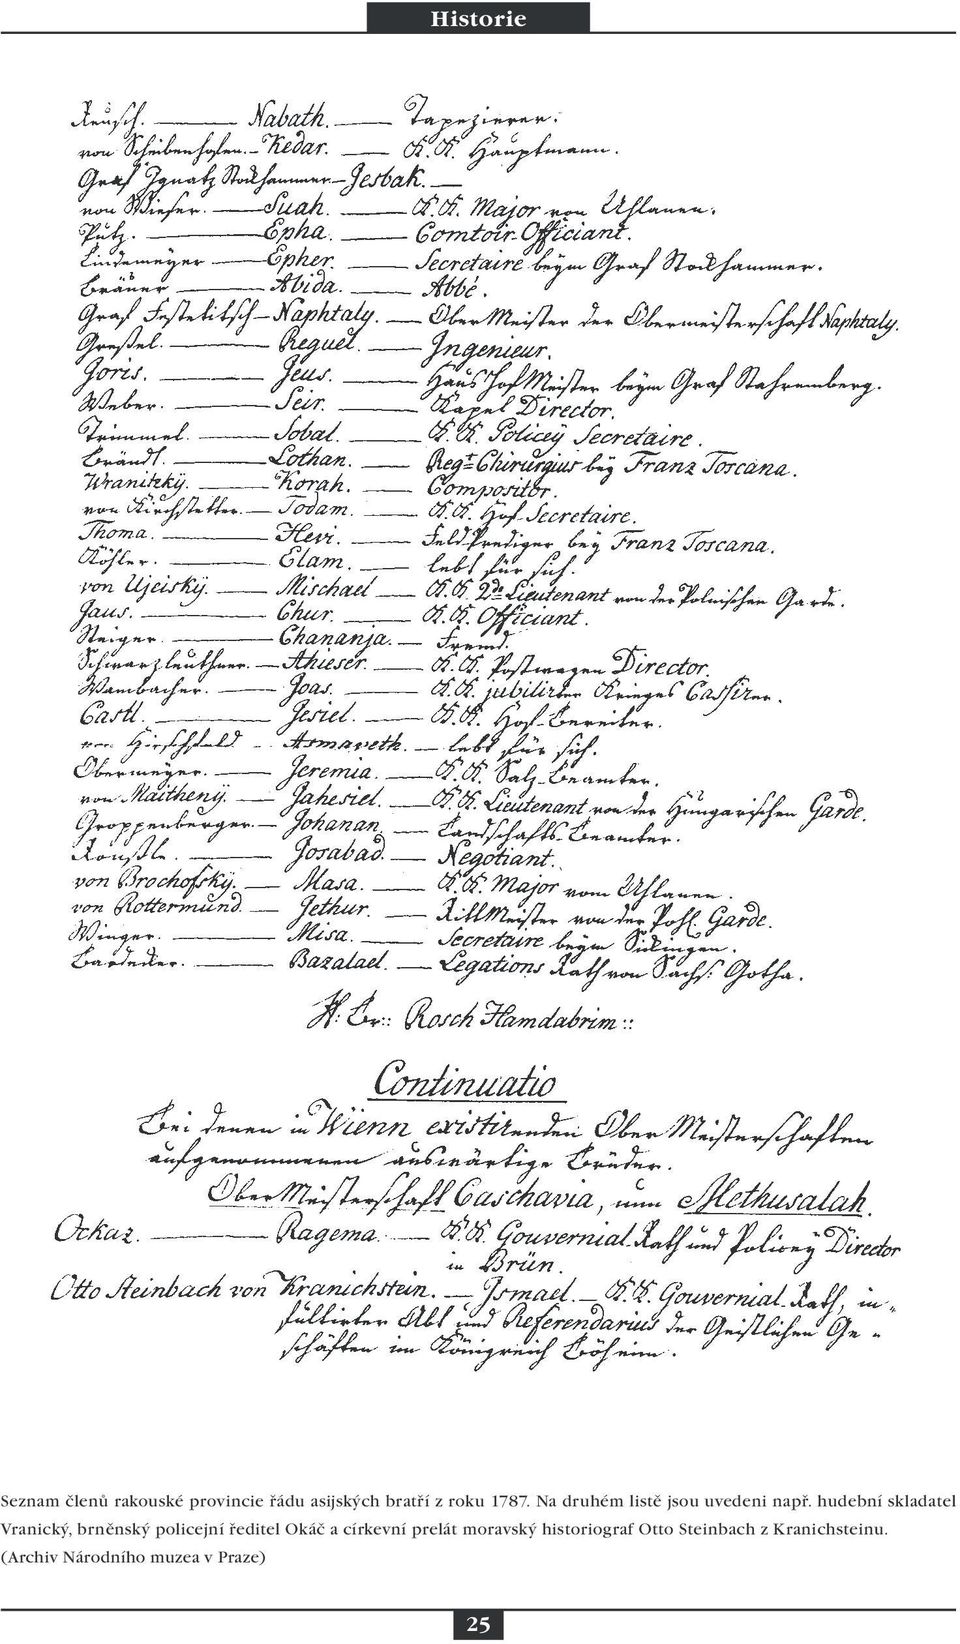 Historie
Reusch. — Nabath. — Tapezierer.
von Scheibenhofen. — Kedar. — K. K. Hauptmann.
Graf Ignatz Stockhammer — Jesbak. —
von Wieser. — Suah. — K. K. Major von Uhlanen.
Putz. — Epha. — Comtoir-Officiant.
Lindemeyer — Epher. — Secretaire beym Graf Stockhammer.
Bräuer — Abida. — Abbé.
Graf Festetitsch — Naphtaly. — OberMeister der Obermeisterschaft Naphtaly.
Greßel. — Reguel. — Ingenieur.
Joris. — Jeus. — Haus HofMeister beym Graf Stahremberg.
Weber. — Seir. — Kapel Director.
Trimmel. — Sobal. — K. K. Policey Secretaire.
Brändl. — Lothan. — Regt. Chirurgius bey Franz Toscana.
Wranitzkÿ. — Korah. — Compositor.
von Kirchstetter. — Todam. — K. K. Hof-Secretaire.
Thoma. — Hevi. — Feld-Prediger bey Franz Toscana.
Köhler. — Elam. — lebt für sich.
von Ujeiskÿ. — Mischael — K. K. 2de Lieutenant von der Polnischen Garde.
Jaus. — Chur. — K. K. Officiant.
Steiger. — Chananja. — Fremd.
Schwarzleuthner. — Ahieser. — K. K. Postwagen Director.
Wambacher. — Joas. — K. K. jubilirter Krieges Cassirer.
Castl. — Jesiel. — K. K. Hof-Bereiter.
von Hirschfeld. — Asmaveth. — lebt für sich.
Obermeyer. — Jeremia. — K. K. Salz-Beamter.
von Maithenÿ. — Jahesiel. — K. K. Lieutenant von der Hungarischen Garde.
Groppenburger. — Johanan. — Landschafts-Beamter.
Rousle. — Josabad. — Negotiant.
von Brochofskÿ. — Masa. — K. K. Major vom Uhlanen.
von Rottermund. — Jethur. — RittMeister von der Pohl. Garde.
Winger. — Misa. — Secretaire beym Sickingen.
Bardecker. — Bazalael. — Legations Rath von Sachs: Gotha.
H: Br:: Rosch Hamdabrim::
Continuatio
Bei denen in Wienn existirenden Ober Meisterschaften
aufgenommenen auswärtige Brüder.
OberMeisterschaft Caschavia, nun Methusalah.
Ockaz. — Ragema. — K. K. Gouvernial-Rath und Policey Director
in Brün.
Otto Steinbach von Kranichstein. — Ismael. — K. K. Gouvernial-Rath, in-
fultirter Abt und Referendarius der Geistlichen Ge-
schäften im Königreich Böheim.
Seznam členů rakouské provincie řádu asijských bratří z roku 1787. Na druhém listě jsou uvedeni např. hudební skladatel
Vranický, brněnský policejní ředitel Okáč a církevní prelát moravský historiograf Otto Steinbach z Kranichsteinu.
(Archiv Národního muzea v Praze)
25